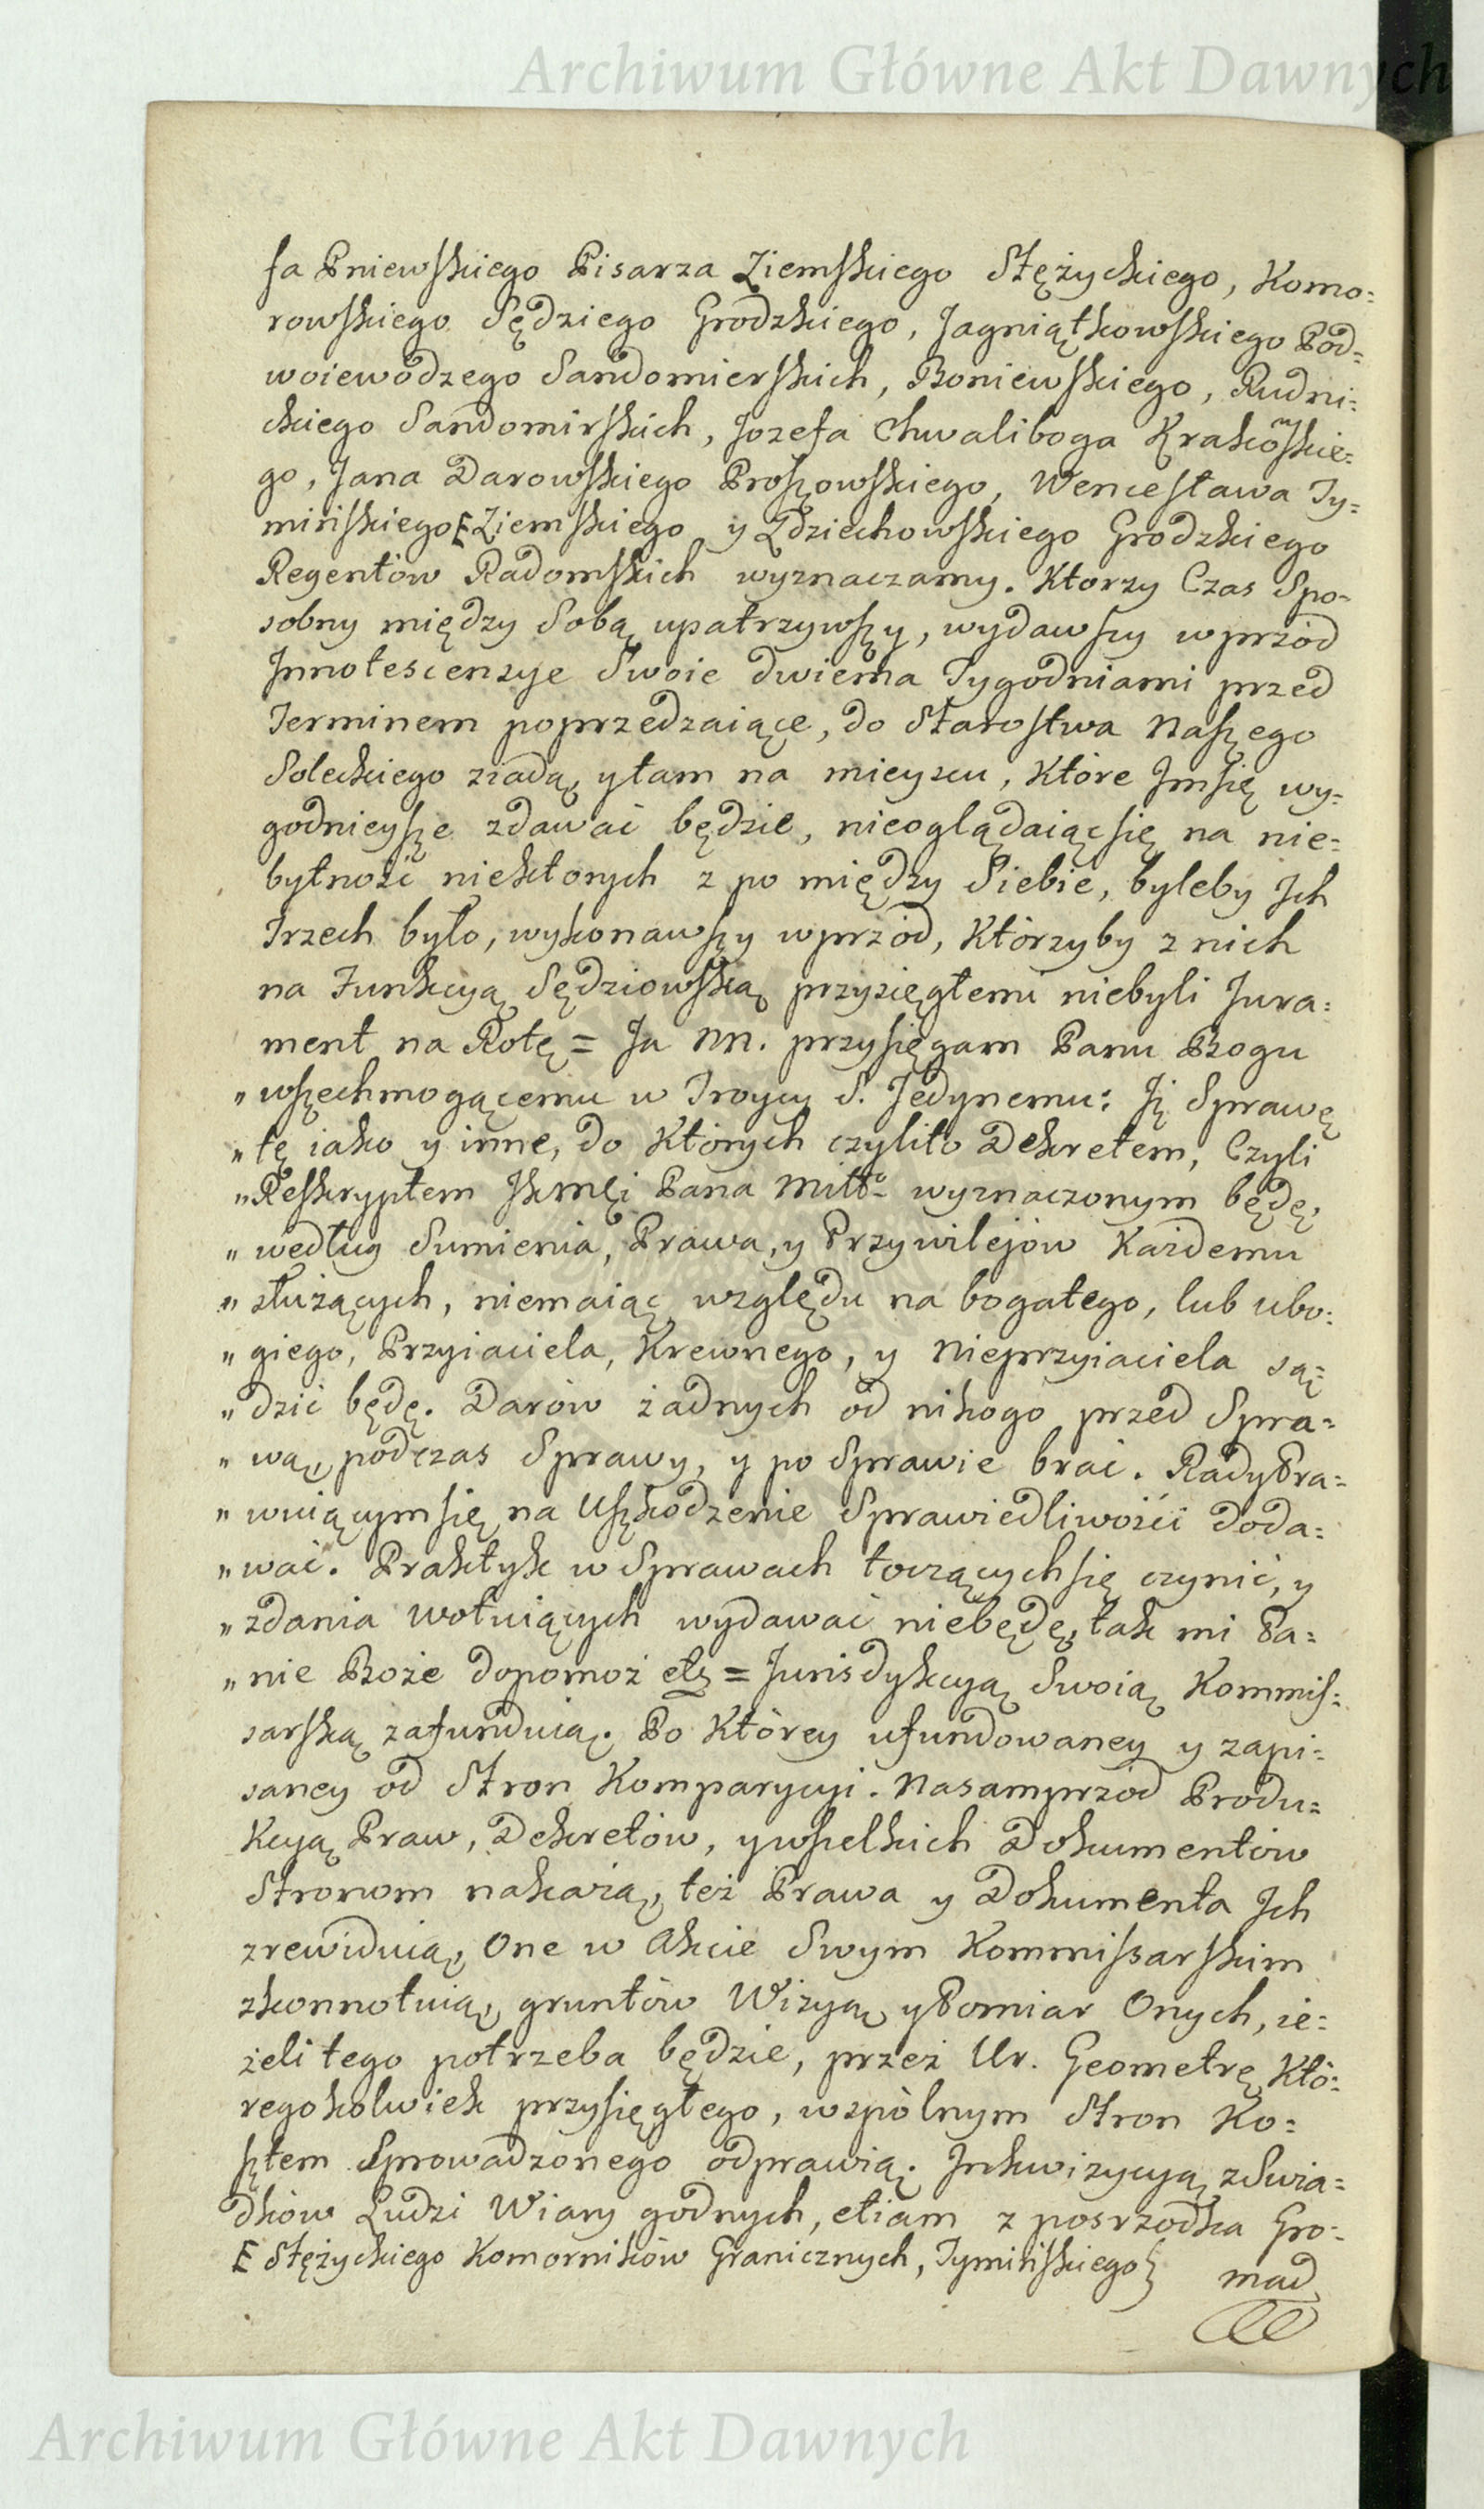 Archiwum Główne Akt Dawnych
fa Pniewskiego Pisarza Ziemskiego Stężyckiego, Komo=
rowskiego Sędziego Grodzkiego, Jagniątkowskiego Pod=
woiewodzego Sandomierskich, Boniewskiego, Rudni=
ckiego Sandomirskich, Jozefa Chwaliboga Krakowskie=
go, Jana Darowskiego Proszowskiego, Wencesława Ty=
mińskiego E Ziemskiego y Zdziechowskiego Grodzkiego
Regentów Radomskich wyznaczamy. Ktorzy Czas Spo=
sobny między Sobą upatrzywszy, wydawszy wprzód
Innotescenzye Swoie dwiema Tygodniami przed
Terminem poprzedzaiące, do Starostwa Naszego
Soleckiego ziadą, y tam na mieyscu, Które Im się wy=
godnieysze zdawać będzie, nieoglądaiąc się na nie=
bytność niektorych z po między Siebie, byleby Ich
Trzech było, wykonawszy wprzód, Którzyby z nich
na Funkcyą Sędziowską przysięgłemi niebyli Jura=
ment na Rotę = Ja NN. przysięgam Panu Bogu
" wszechmogącemu w Troycy S. Jedynemu: Iż Sprawę
" tę iako y inne, do Których czylito Dekretem, Czyli
" Reskryptem JKmći Pana Miłło wyznaczonym będę,
" według Sumienia, Prawa, y Przywilejów Każdemu
" służących, niemaiąc względu na bogatego, lub ubo=
" giego, Przyiaciela, Krewnego, y Nieprzyiaciela są=
" dzić będę. Darów żadnych od nikogo przed Spra=
" wą, podczas Sprawy, y po Sprawie brać. Rady Pra=
" wuiącym się na Uszkodzenie Sprawiedliwości doda=
" wać. Praktyk w Sprawach toczących się czynić, y
" zdania wotuiących wydawać niebędę, tak mi Pa=
" nie Boże dopomoż etc = Jurisdykcyą Swoią Kommis=
sarską zafunduią. Po Którey ufundowaney y zapi=
saney od Stron Komparycyi. Nasamprzód Produ=
Kcyą Praw, Dekretów, y wszelkich Dokumentów
Stronom nakażą, też Prawa y Dokumenta Ich
zrewiduią, One w Akcie Swym Kommissarskim
zkonnotuią, gruntów Wizyą y Pomiar Onych, ie=
żeli tego potrzeba będzie, przez Ur. Geometrę Któ=
regokolwiek przysięgłego, wspólnym Stron Ko=
sztem Sprowadzonego odprawią. Inkwizycyą z Swia=
dków Ludzi Wiary godnych, etiam z posrzodka Gro=
E Stężyckiego Komorników Granicznych, Tymińskiego
mad
Archiwum Główne Akt Dawnych